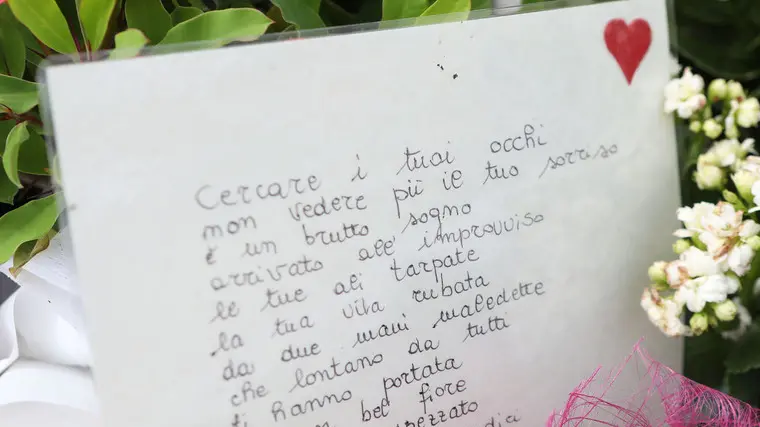 Cercare i tuoi occhi
non vedere più il tuo sorriso
è un brutto sogno
arrivato all' improvviso
le tue ali tarpate
la tua vita rubata
da due mani maledette
che lontano da tutti
ti hanno portata
bel fiore